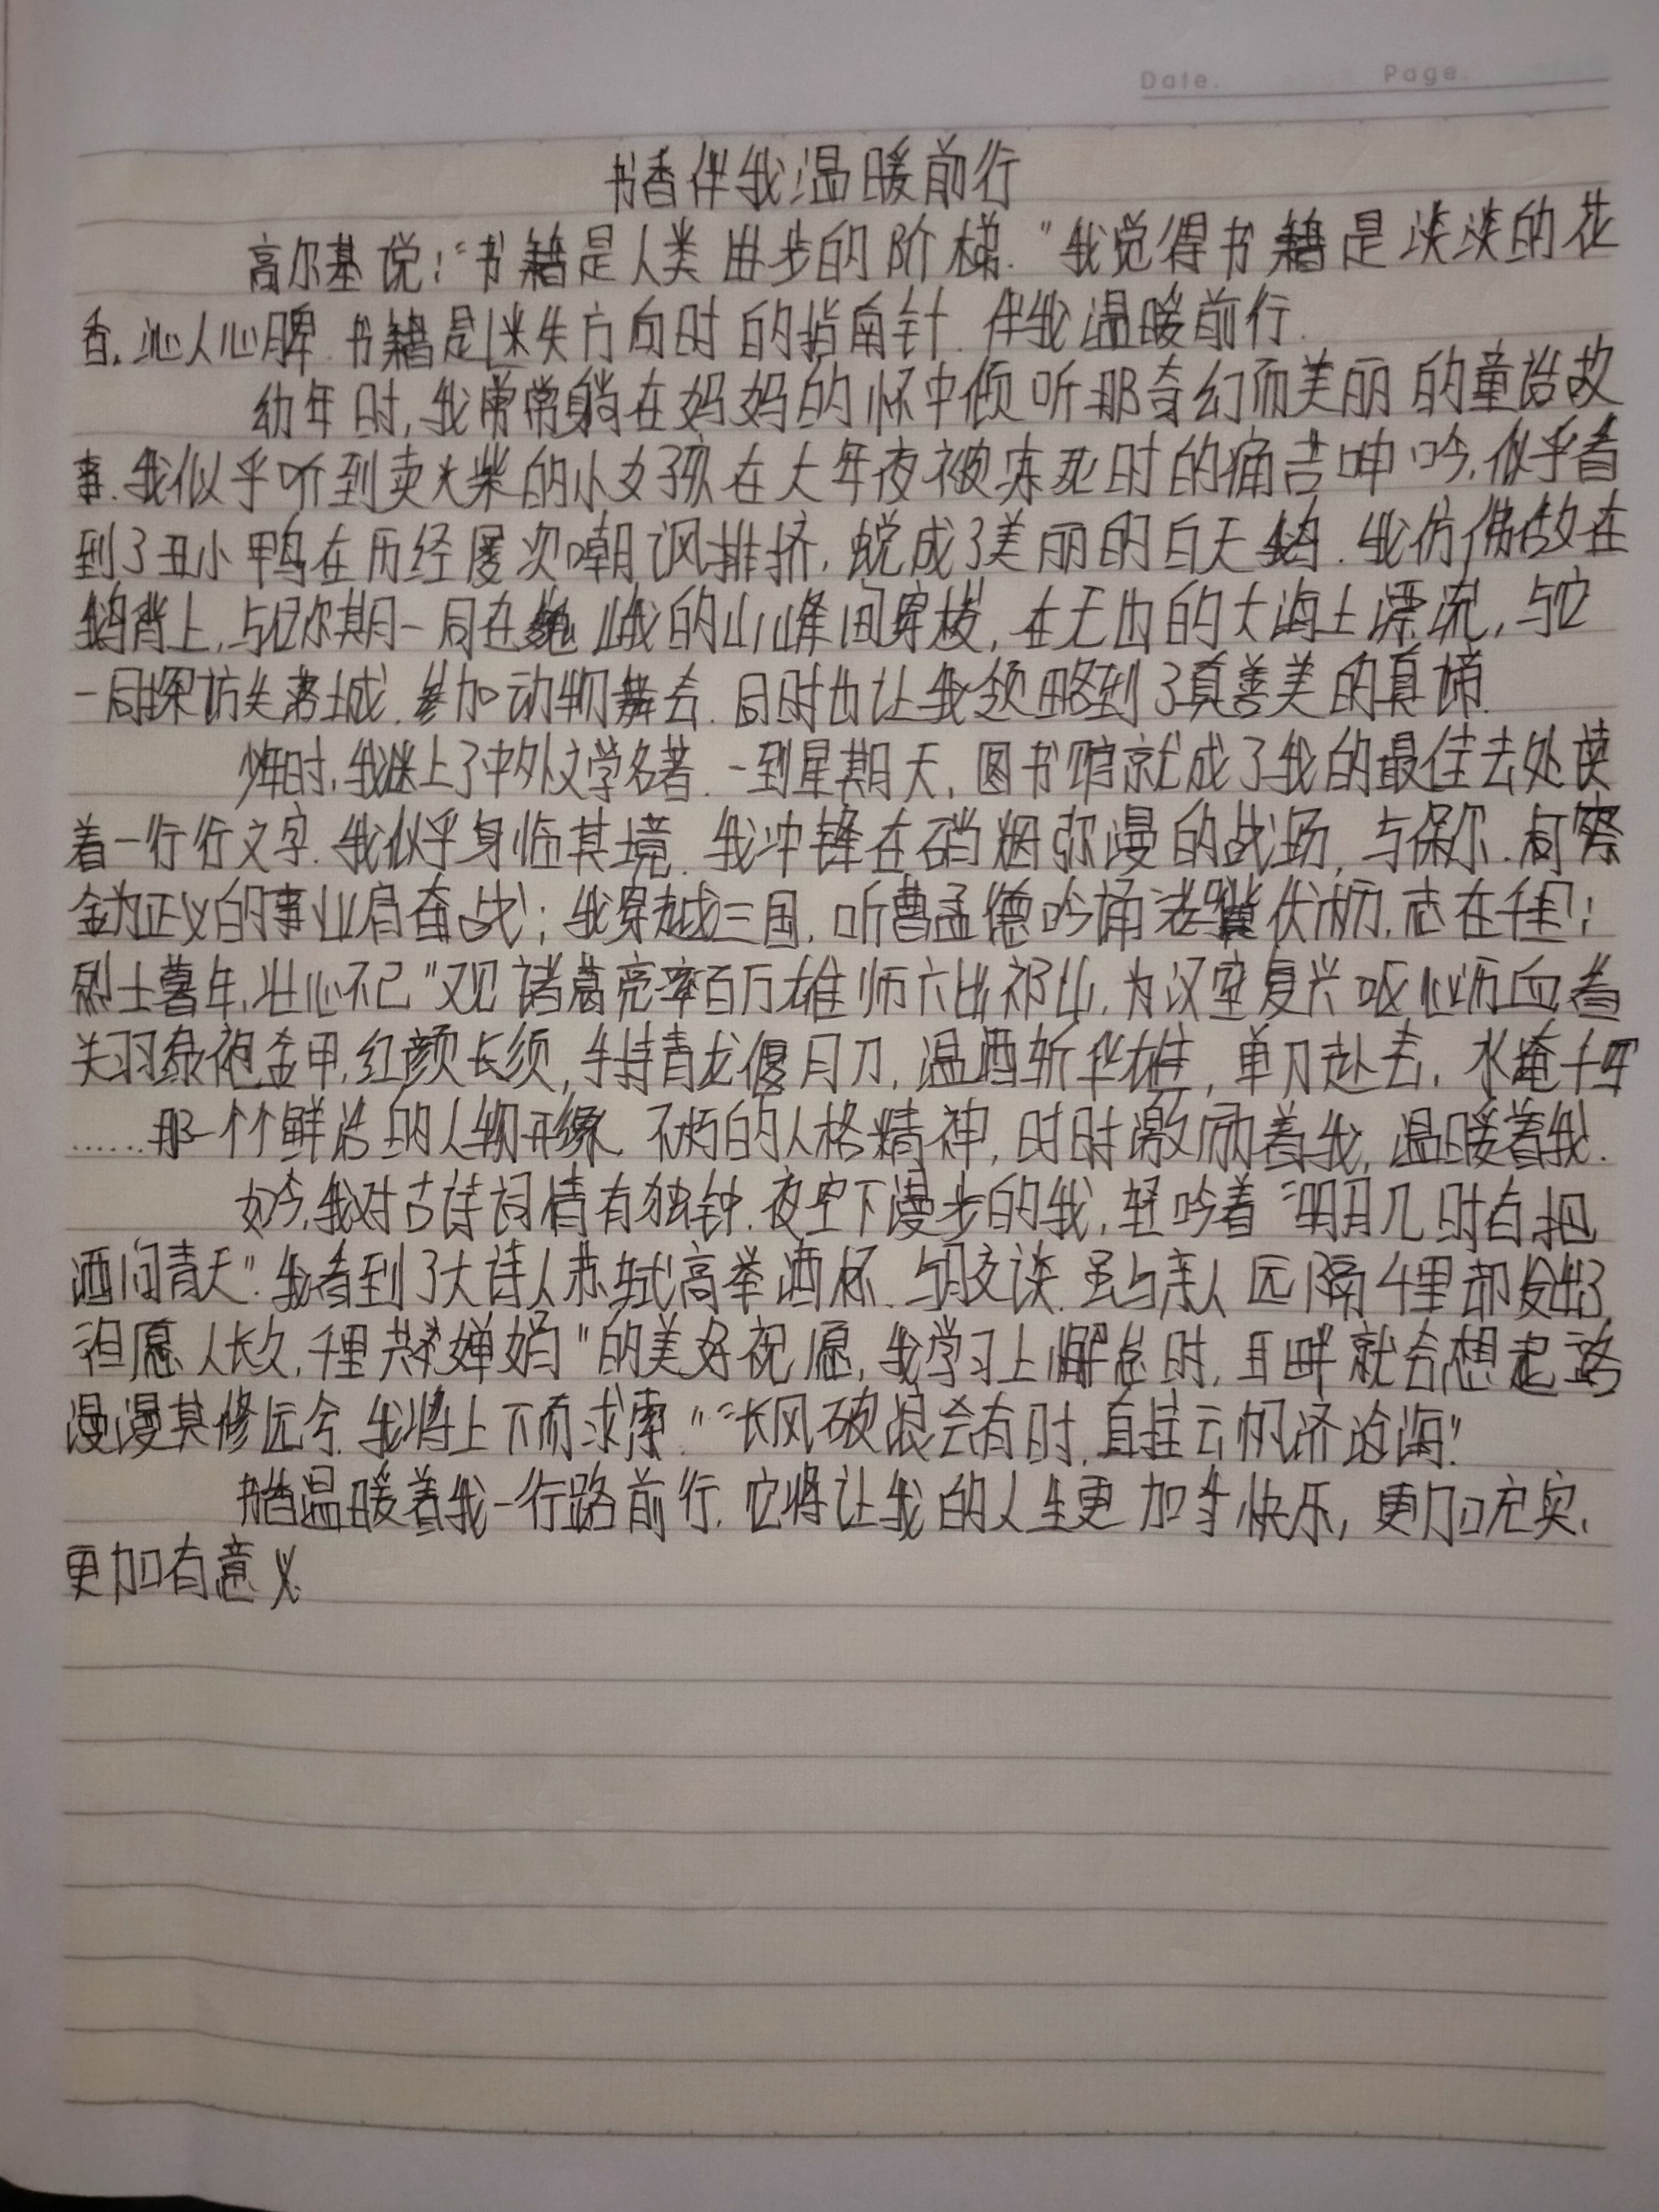 Date. Page.
书香伴我温暖前行
高尔基说:“书籍是人类进步的阶梯.”我觉得书籍是淡淡的花
香.沁人心脾.书籍是迷失方向时的指南针.伴我温暖前行.
幼年时,我常常躺在妈妈的怀中倾听那奇幻而美丽的童话故
事.我似乎听到卖火柴的小女孩在大年夜被冻死时的痛苦呻吟.似乎看
到了丑小鸭在历经屡次嘲讽排挤,蜕成了美丽的白天鹅.我仿佛
鹅背上,与尼尔其期一同在 峨的山峰间穿梭,在无边的大海上漂流,与它
一同探访失落城.参加动物舞会.同时也让我领略到了真善美的真谛.
少年时,我迷上了中外文学名著.一到星期天,图书馆就成了我的最佳去处读
着一行行文字.我似乎身临其境.我冲锋在硝烟弥漫的战场,与保尔.柯察
金为正义的事业肩奋战;我穿越三国,听曹孟德吟诵老骥伏枥,志在千里;
烈士暮年,壮心不已”观诸葛亮率百万雄师六出祁山,为汉室复兴呕心沥血着
关羽绿袍金甲,红颜长须,手持青龙偃月刀,温酒斩华雄,单刀赴去,水淹十军
……那一个个鲜活的人物形象.不朽的人格精神,时时激励着我,温暖着我.
如今,我对古诗词情有独钟.夜空下漫步的我,轻吟着“明月几时有把
酒问青天”.我看到了大诗人苏轼高举酒杯.与月交谈.虽与亲人远隔千里却发出了
但愿人长久,千里共婵娟”的美好祝愿,我学习上懈怠时,耳畔就会想起路
漫漫其修远兮.我将上下而求索.”“长风破浪会有时,直挂云帆济沧海”
书香温暖着我一行路前行.它将让我的人生更加 快乐,更加充实,
更加有意义.